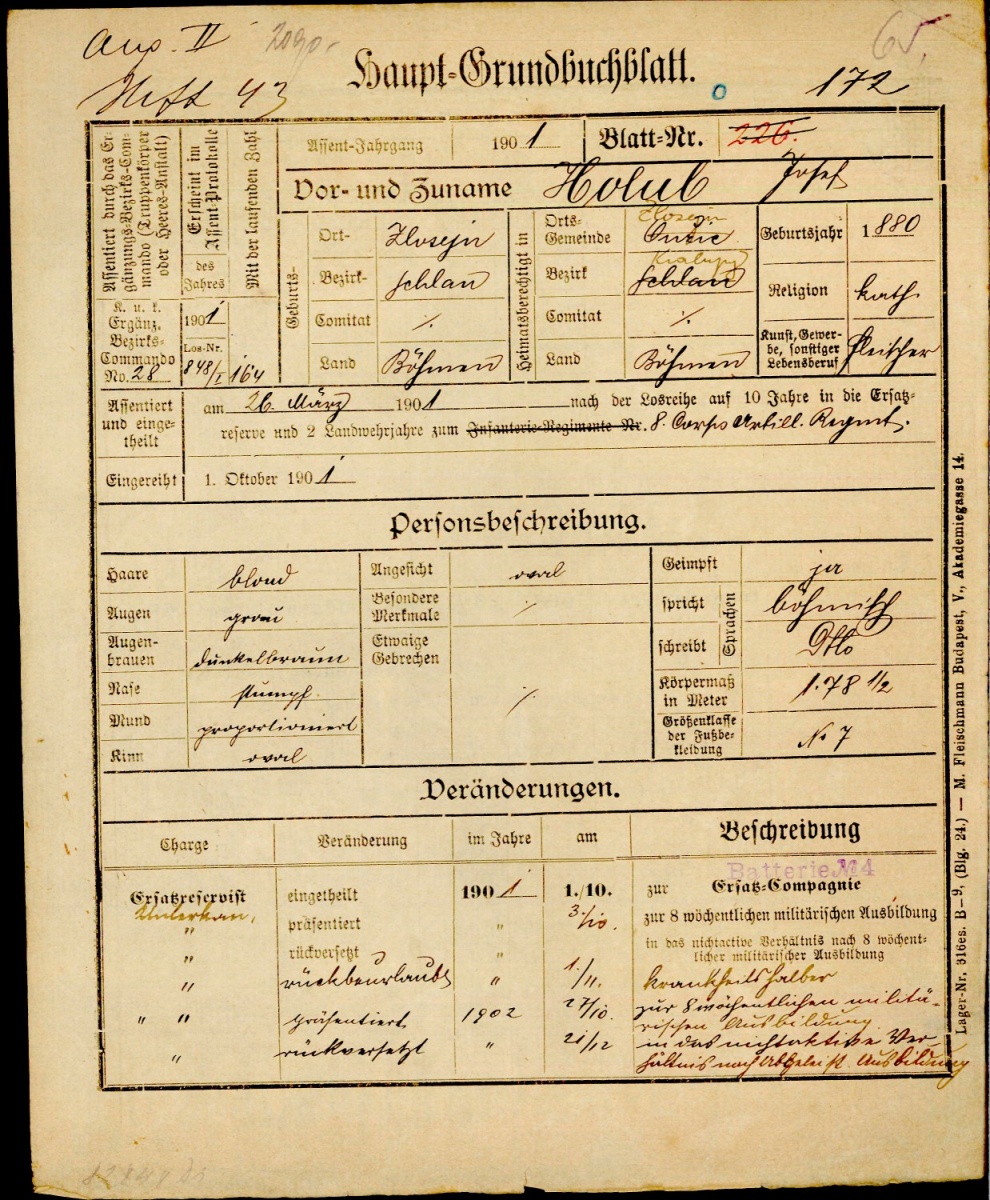 Heft 43
Haupt-Grundbuchblatt.
65
172
Assentiert durch das Ergänzungs-Bezirks-Commando (Truppenkörper oder Heeres-Anstalt)
Erscheint im Assent-Protokolle
des Jahres
Mit der laufenden Zahl
Assent-Jahrgang 1901
Blatt-Nr. 226.
Vor- und Zuname Holub Josef
K. u. k. Ergänz. Bezirks-Commando No. 28
1901
Los-Nr. 848/I
164
Geburts-
Ort- Zlosejn
Bezirk- Schlan
Comitat ./.
Land Böhmen
Heimatsberechtigt in
Orts-Gemeinde Zlosejn
Bezirk Kralupy Schlan
Comitat ./.
Land Böhmen
Geburtsjahr 1880
Religion kath.
Kunst, Gewerbe, sonstiger Lebensberuf Fleischer
Assentiert und eingetheilt
am 26. März 1901 nach der Losreihe auf 10 Jahre in die Ersatz-
reserve und 2 Landwehrjahre zum Infanterie-Regimente Nr. 8. Corps Artill. Regmt.
Eingereiht 1. Oktober 1901
Personsbeschreibung.
Haare blond
Augen grau
Augen-brauen dunkelbraun
Nase stumpf
Mund proportioniert
Kinn oval
Angesicht oval
Besondere Merkmale ./.
Etwaige Gebrechen ./.
Geimpft ja
Sprachen
spricht böhmisch
schreibt Dtto
Körpermaß in Meter 1.78 1/2
Größenklasse der Fußbekleidung No 7
Veränderungen.
Charge Veränderung im Jahre am Beschreibung
Batterie № 4
Ersatzreservist eingetheilt 1901 1./10. zur Ersatz-Compagnie
" präsentiert " 3./10. zur 8 wöchentlichen militärischen Ausbildung
" rückversetzt " in das nichtactive Verhältnis nach 8 wöchent-
licher militärischer Ausbildung
" rückbeurlaubt " 1./11. krankheitshalber
" " präsentiert 1902 27/10. zur 8 wöchentlichen militä-
rischen Ausbildung.
" rückversetzt " 21/12 in das nichtaktive Ver-
hältnis nach abgeleist. Ausbildung
Lager-Nr. 316es. B-9, (Blg. 24.) — M. Fleischmann Budapest, V., Akademiegasse 14.